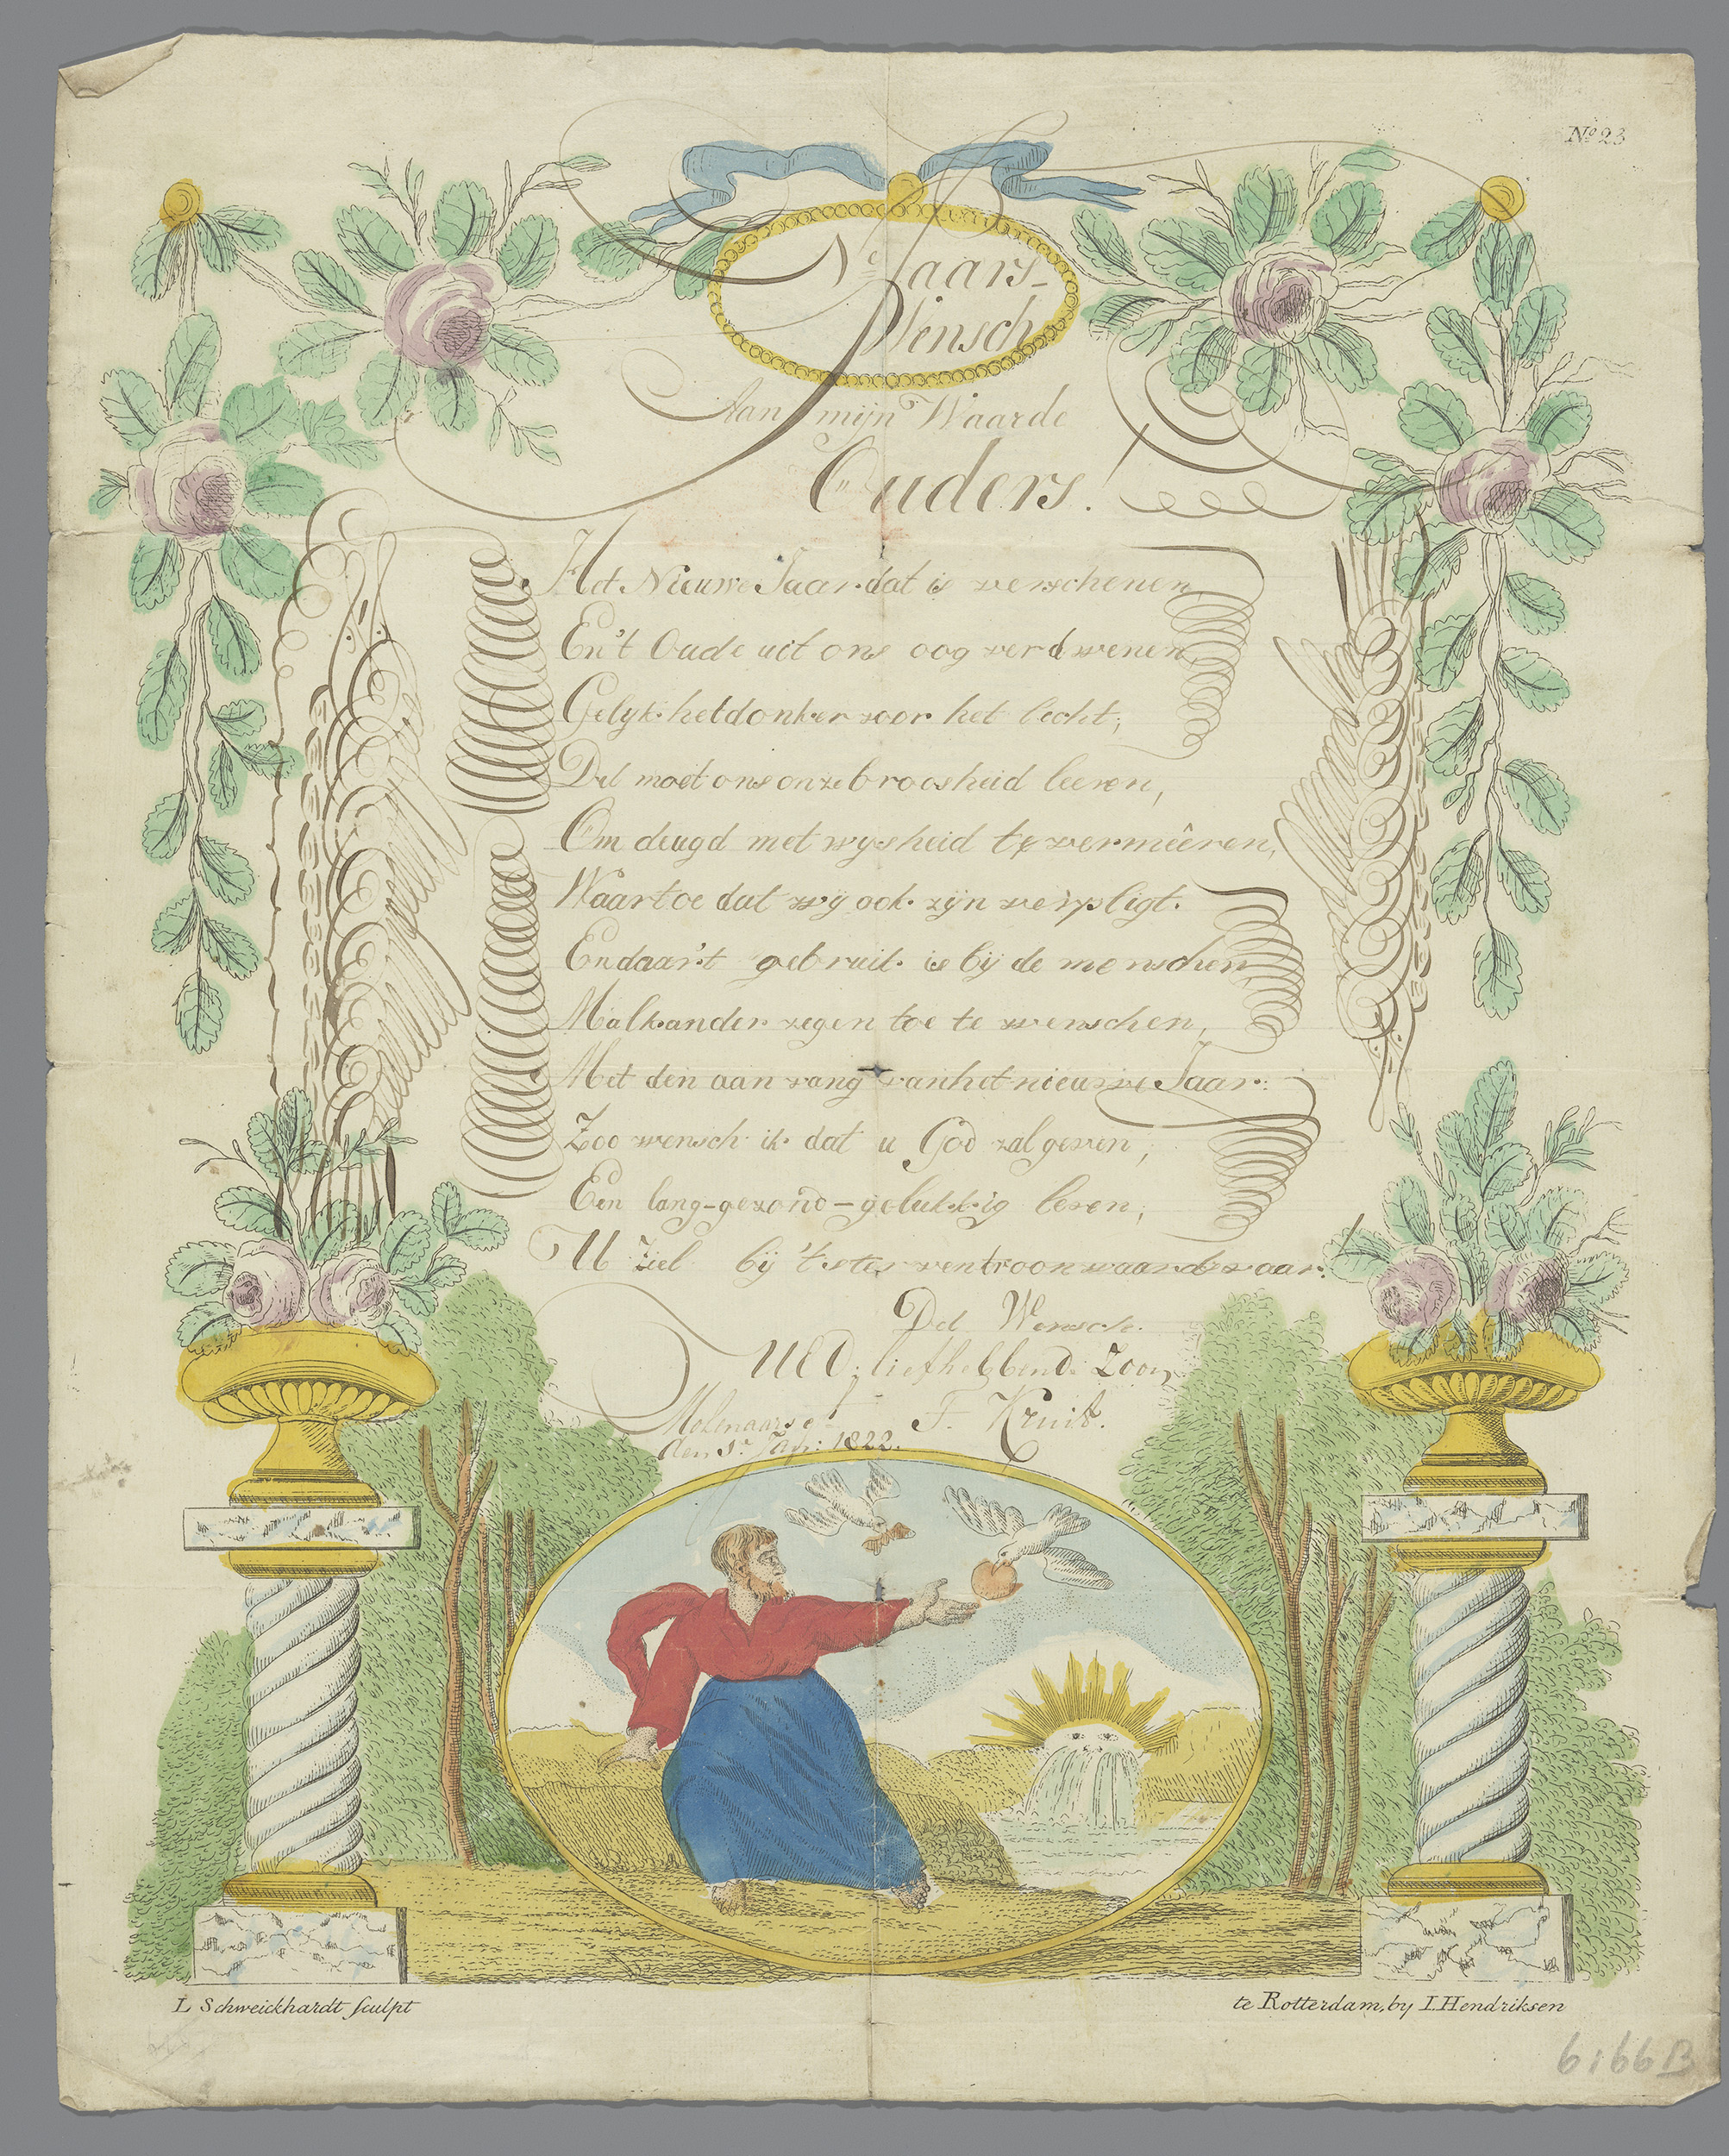 No 23
N. Jaars-
Wensch
Aan mijn Waarde
Ouders!
Het Nieuwe Jaar dat is verschenen
En't Oude uit ons oog verdwenen
Gelyk het donker voor het licht;
Dit moet ons onze broosheid leeren,
Om deugd met wysheid te vermêeren,
Waartoe dat wy ook zyn verpligt.
En daar't gebruik is bij de menschen
Malkander zegen toe te wenschen,
Met den aanvang van het nieuwe Jaar:
Zoo wensch ik dat u God zal geven;
Een lang-gezond-gelukkig leven,
U ziel bij 't sterven troon waarde
Dit Wensch
UED: liefhebbende Zoon
F. Kruit.
den 1e Jan: 1822.
L Schweickhardt sculpt
te Rotterdam, by I. Hendriksen
6166B